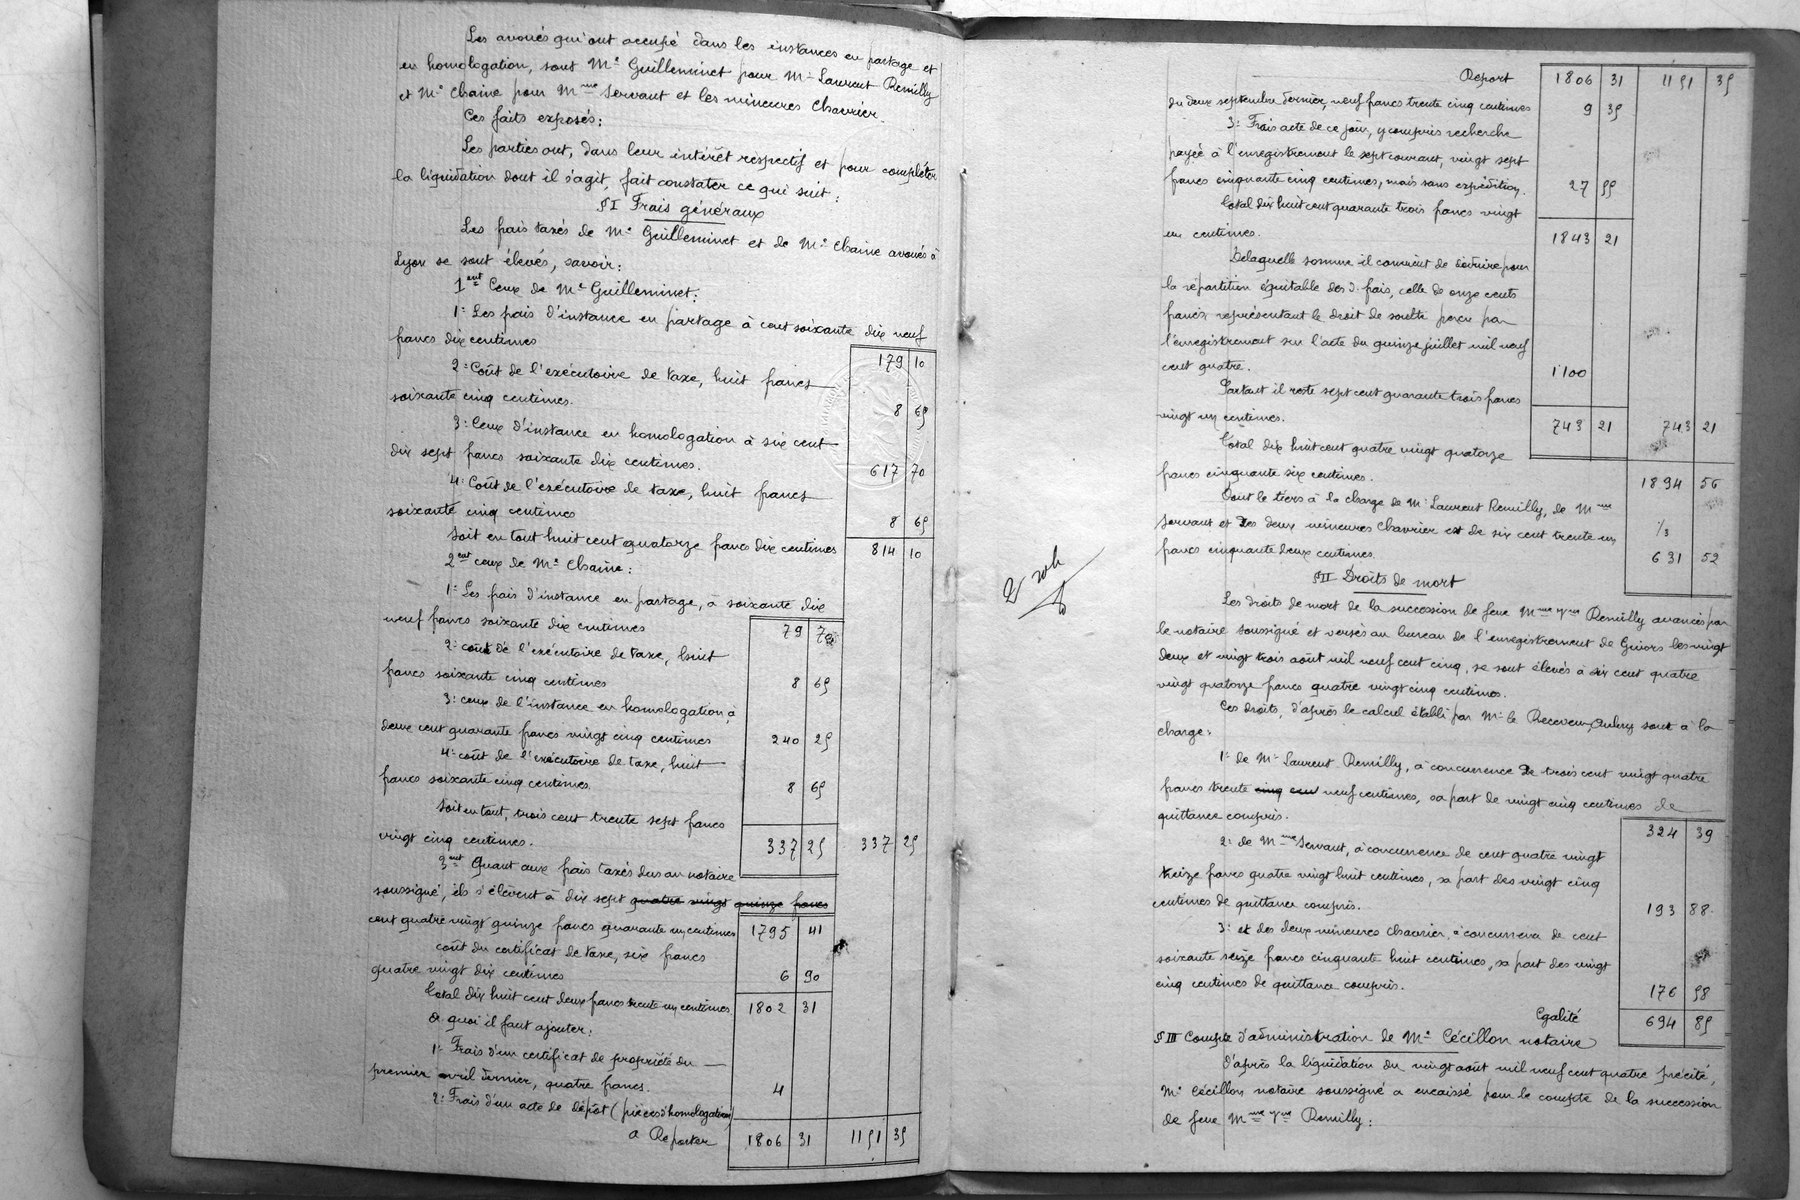 Les avoués qui ont occupé dans les instances en partage et
en homologation, sont Me Guilleminet pour Mr Laurent Remilly
et Me Chaine pour Mme Servant et les mineures Chavrier.
Ces faits exposés:
Les parties ont, dans leur intérêt respectif et pour compléter
la liquidation dont il s'agit, fait constater ce qui suit:
§ I Frais généraux
Les frais taxés de Me Guilleminet et de Me Chaine avoués à
Lyon se sont élevés, savoir:
1ent Ceux de Me Guilleminet:
1° Les frais d'instance en partage à cent soixante dix neuf
francs dix centimes 179 10
2° Coût de l'exécutoire de taxe, huit francs
soixante cinq centimes. 8 65
3° Ceux d'instance en homologation à six cent
dix sept francs soixante dix centimes. 617 70
4° Coût de l'exécutoire de taxe, huit francs
soixante cinq centimes 8 65
Soit en tout huit cent quatorze francs dix centimes 814 10
2ent ceux de Me Chaine:
1° Les frais d'instance en partage, à soixante dix
neuf francs soixante dix centimes 79 70
2° coût de l'exécutoire de taxe, huit
francs soixante cinq centimes 8 65
3° ceux de l'instance en homologation à
deux cent quarante francs vingt cinq centimes 240 25
4° coût de l'exécutoire de taxe, huit
francs soixante cinq centimes. 8 65
Soit en tout, trois cent trente sept francs
vingt cinq centimes. 337 25 337 25
3ent Quant aux frais taxés dus au notaire
soussigné, ils s'élèvent à dix sept quatre vingt quinze francs
cent quatre vingt quinze francs quarante un centimes 1795 41
coût du certificat de taxe, six francs
quatre vingt dix centimes 6 90
Total dix huit cent deux francs trente un centimes 1802 31
à quoi il faut ajouter:
1° Frais d'un certificat de propriété du
premier avril dernier, quatre francs. 4
2° Frais d'un acte de dépôt (pièces d'homologation)
à Reporter 1806 31 1151 35
Report 1806 31 1151 35
du deux septembre dernier, neuf francs trente cinq centimes 9 35
3° Frais acte de ce jour, y compris recherche
payée à l'enregistrement le sept courant, vingt sept
francs cinquante cinq centimes, mais sans expédition. 27 55
Total dix huit cent quarante trois francs vingt
un centimes. 1843 21
Delaquelle somme il convient de déduire pour
la répartition équitable des d. frais, celle de onze cents
francs représentant le droit de soulte perçu par
l'enregistrement sur l'acte du quinze juillet mil neuf
cent quatre. 1100
Partant il reste sept cent quarante trois francs
vingt un centimes. 743 21 743 21
Total dix huit cent quatre vingt quatorze
francs cinquante six centimes. 1894 56
Dont le tiers à la charge de Mr Laurent Remilly, de Mme
Servant et des deux mineures Chavrier est de six cent trente un 1/3
francs cinquante deux centimes. 631 52
§ II Droits de mort
Les droits de mort de la succession de feue Mme Vve Remilly avancés par
le notaire soussigné et versés au bureau de l'enregistrement de Givors les vingt
deux et vingt trois août mil neuf cent cinq, se sont élevés à six cent quatre
vingt quatorze francs quatre vingt cinq centimes.
Ces droits, d'après le calcul établi par Mr le Receveur, sont à la
charge:
1° de Mr Laurent Remilly, à concurrence de trois cent vingt quatre
francs trente cinq cen neuf centimes, sa part de vingt cinq centimes de
quittance compris. 324 39
2° de Mme Servant, à concurrence de cent quatre vingt
treize francs quatre vingt huit centimes, sa part des vingt cinq
centimes de quittance compris. 193 88
3° et des deux mineures Chavrier, à concurrence de cent
soixante seize francs cinquante huit centimes, sa part des vingt
cinq centimes de quittance compris. 176 58
Egalité 694 85
§ III Compte d'administration de Me Cécillon notaire
D'après la liquidation du vingt août mil neuf cent quatre précité,
Me Cécillon notaire soussigné a encaissé pour le compte de la succession
de feue Mme Vve Remilly: